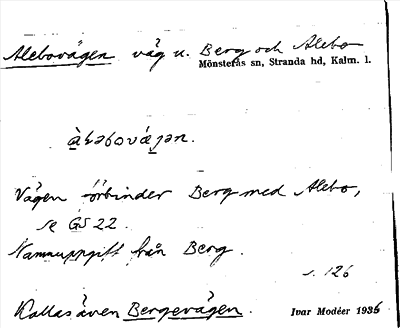 Alebovägen väg u. Berg och Alebo
Mönsterås sn, Stranda hd, Kalm. l.
Vägen förbinder Berg med Alebo,
se GS 22.
Namnuppgift från Berg.
s. 126
Kallas även Bergevägen. Ivar Modéer 1936